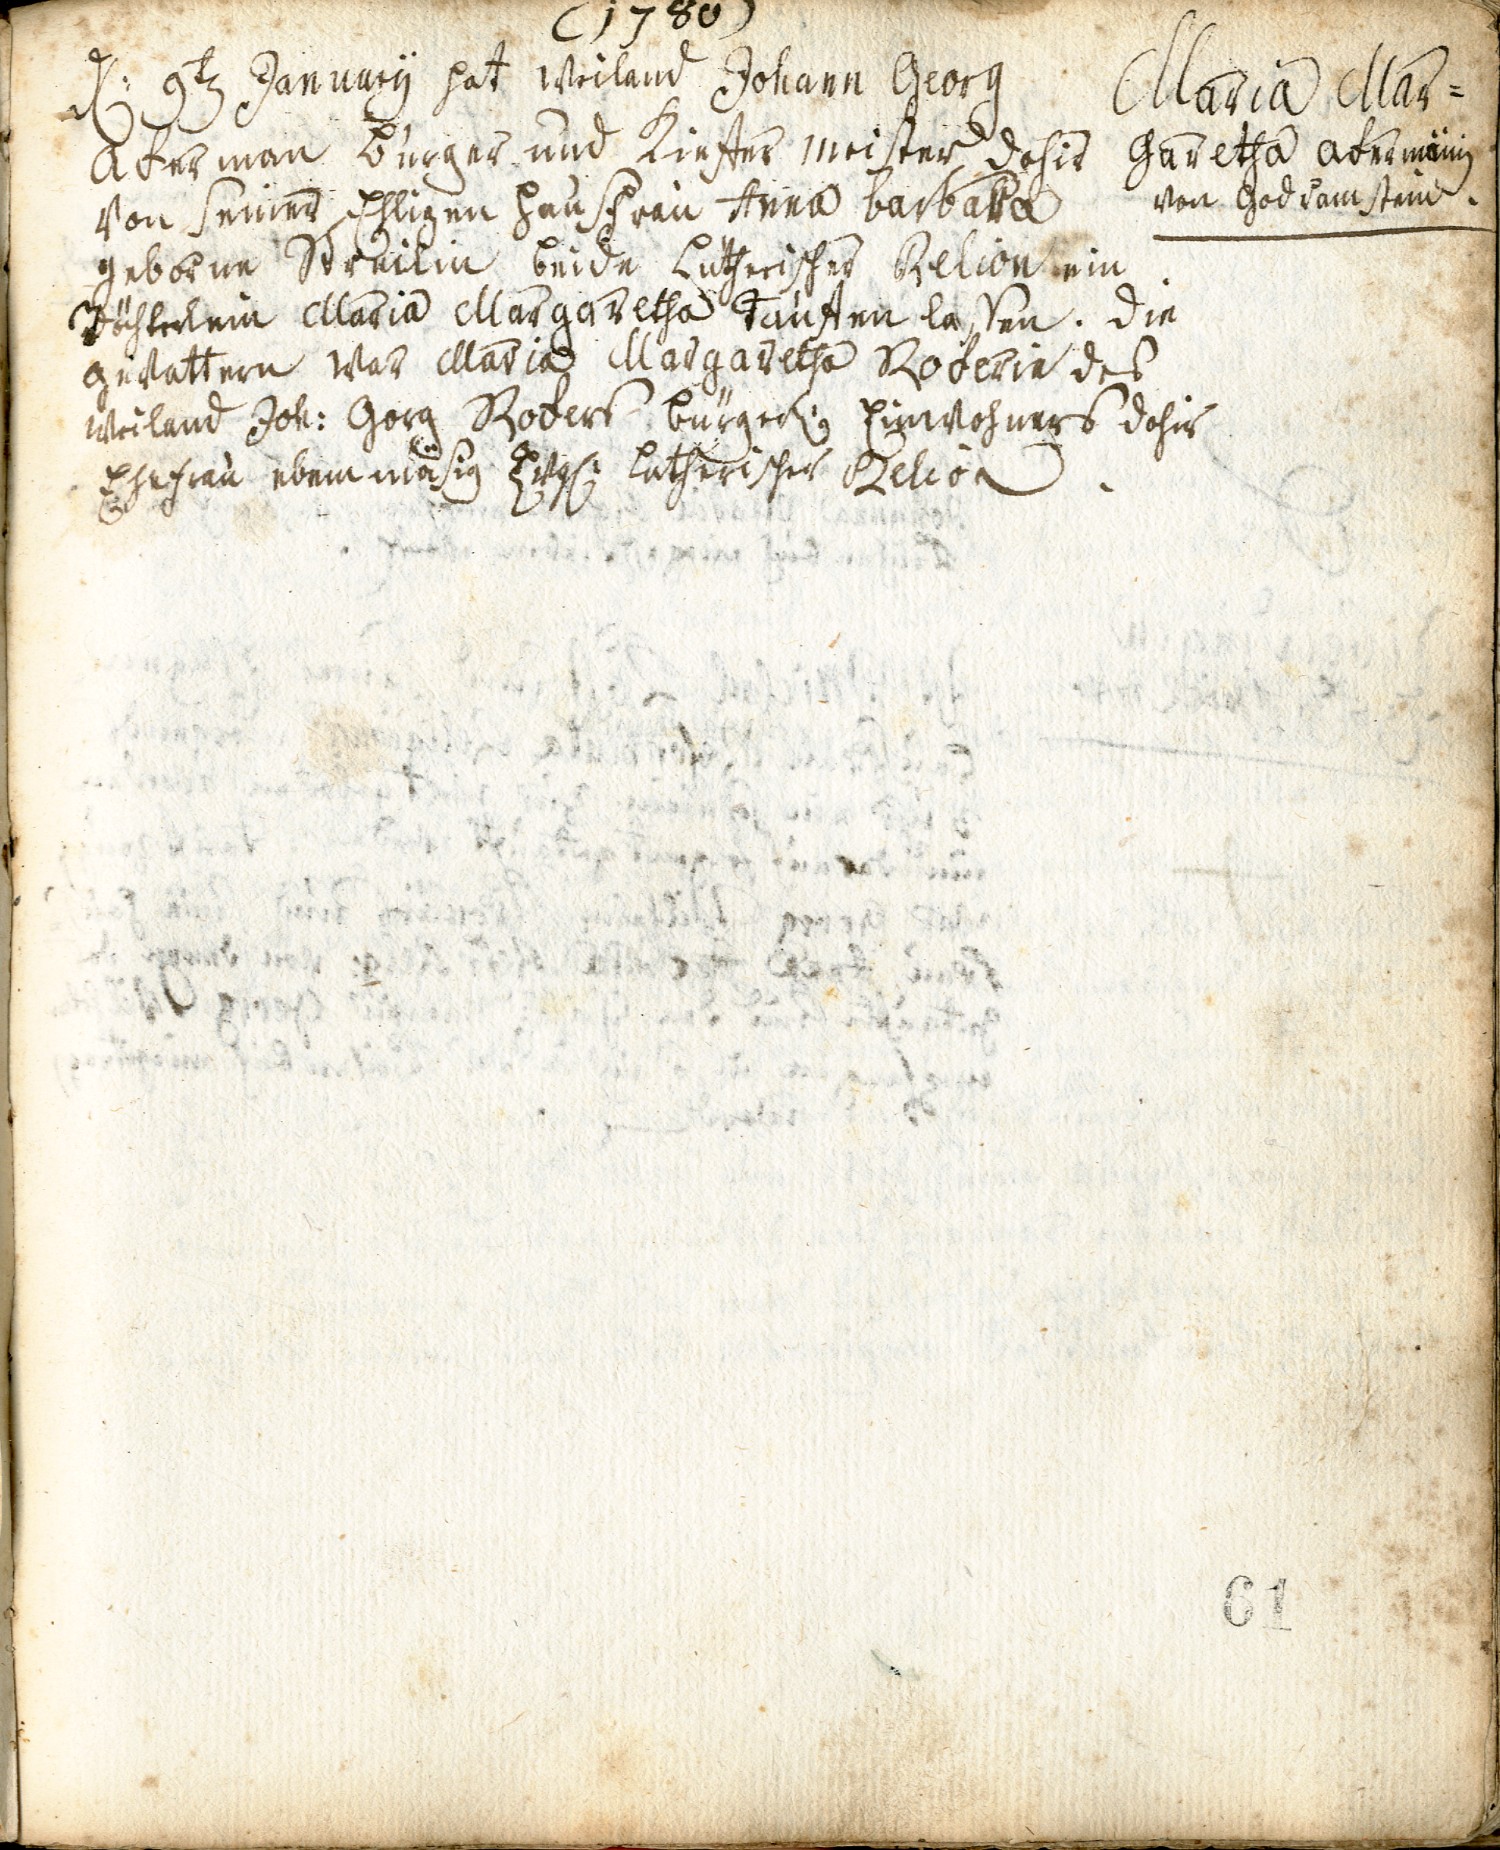 (1780)
d: 9t January hat weiland Johann Georg
Akerman burger und Kieffer meister dahir
von seiner Ehligen haus frau Anna barbara
geborne Streilin beide Lutherischer Relion ein
döchterlein Maria Margaretha tauffen lassen. die
gevattern war Maria Margaretha Rokerin des
weiland Joh: Gorg Rokers burger Einwohners dahir
Ehefrau ebenmäsig Evg: lutherischer Relion
Maria Mar=
garetha akermänin
von Godramstein.
61